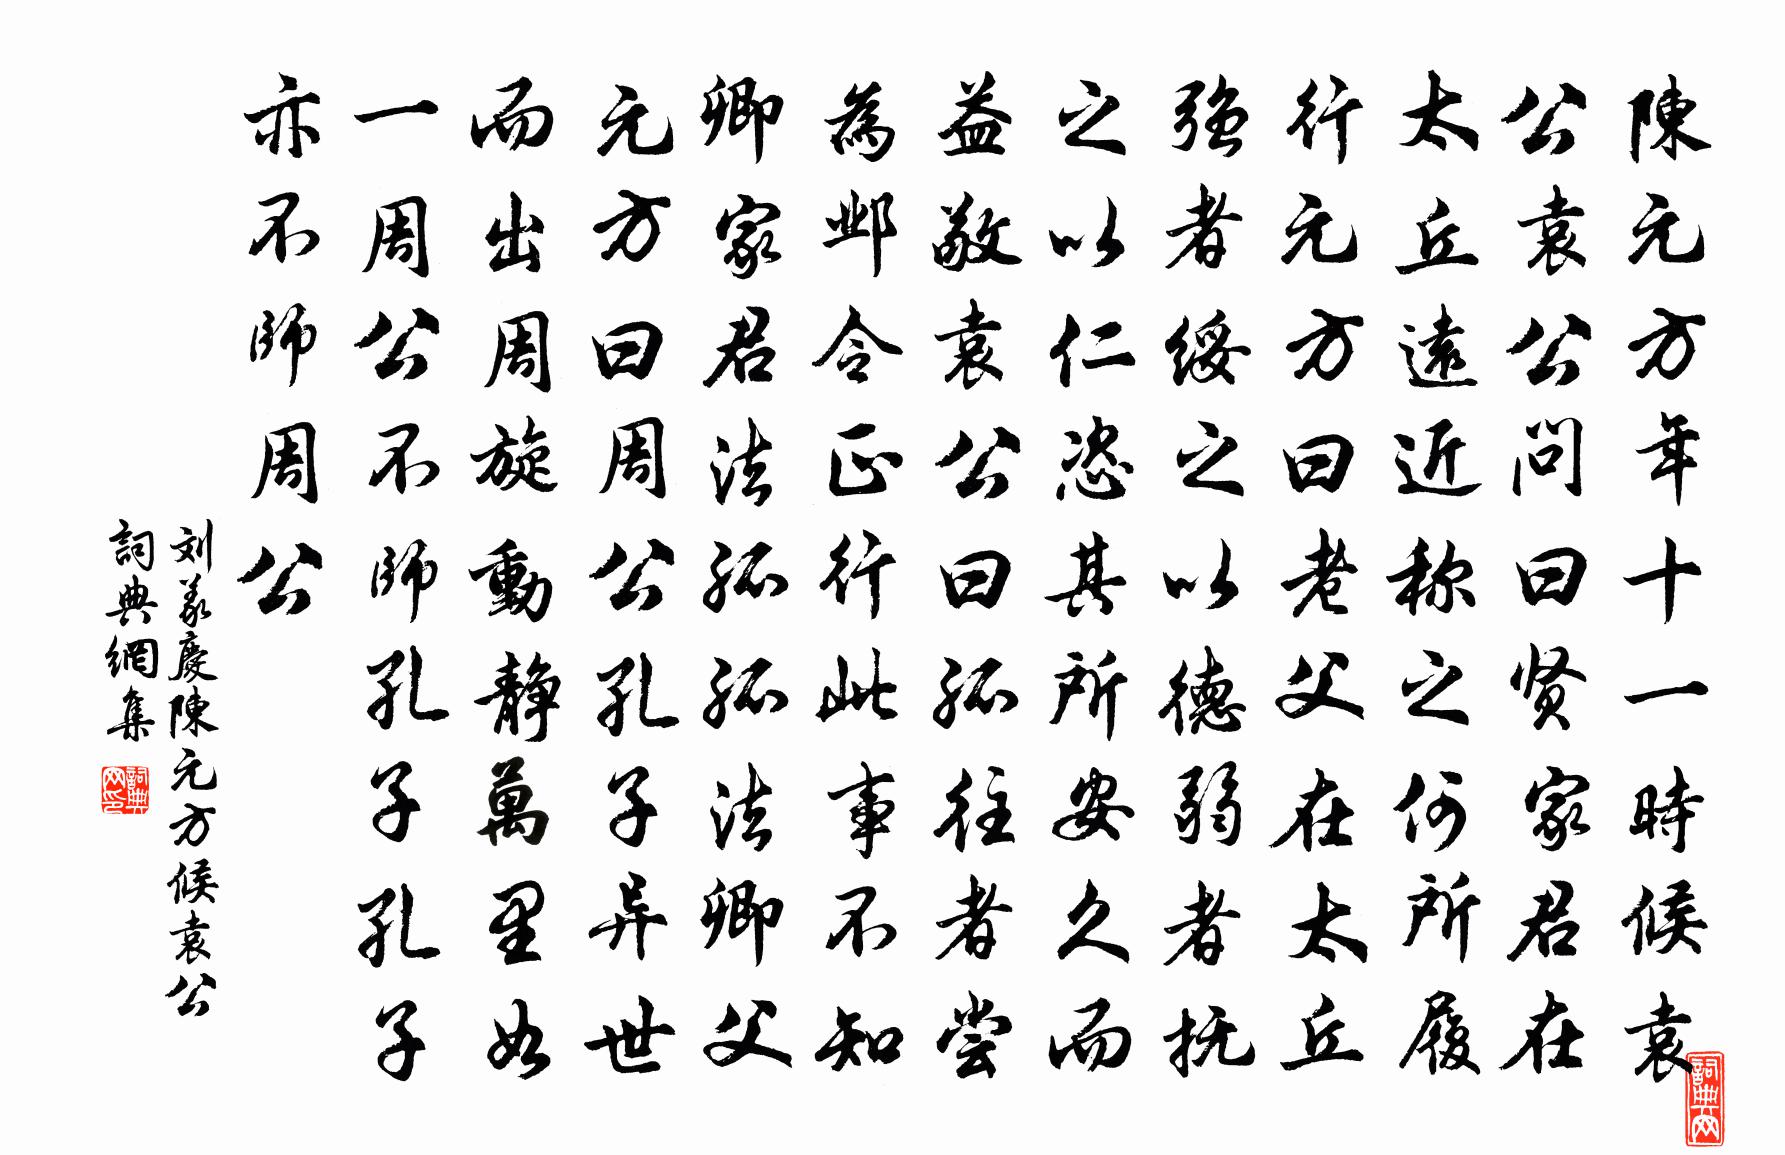 陳元方年十一時候袁
公袁公問曰贤家君在
太丘遠近称之何所履
行元方曰老父在太丘
强者绥之以德弱者抚
之以仁恣其所安久而
益敬袁公曰孤往者尝
為邺令正行此事不知
卿家君法孤孤法卿父
元方曰周公孔子异世
而出周旋動静萬里如
一周公不師孔子孔子
亦不師周公
刘义慶陳元方候袁公
詞典網集
詞典网印
詞典网